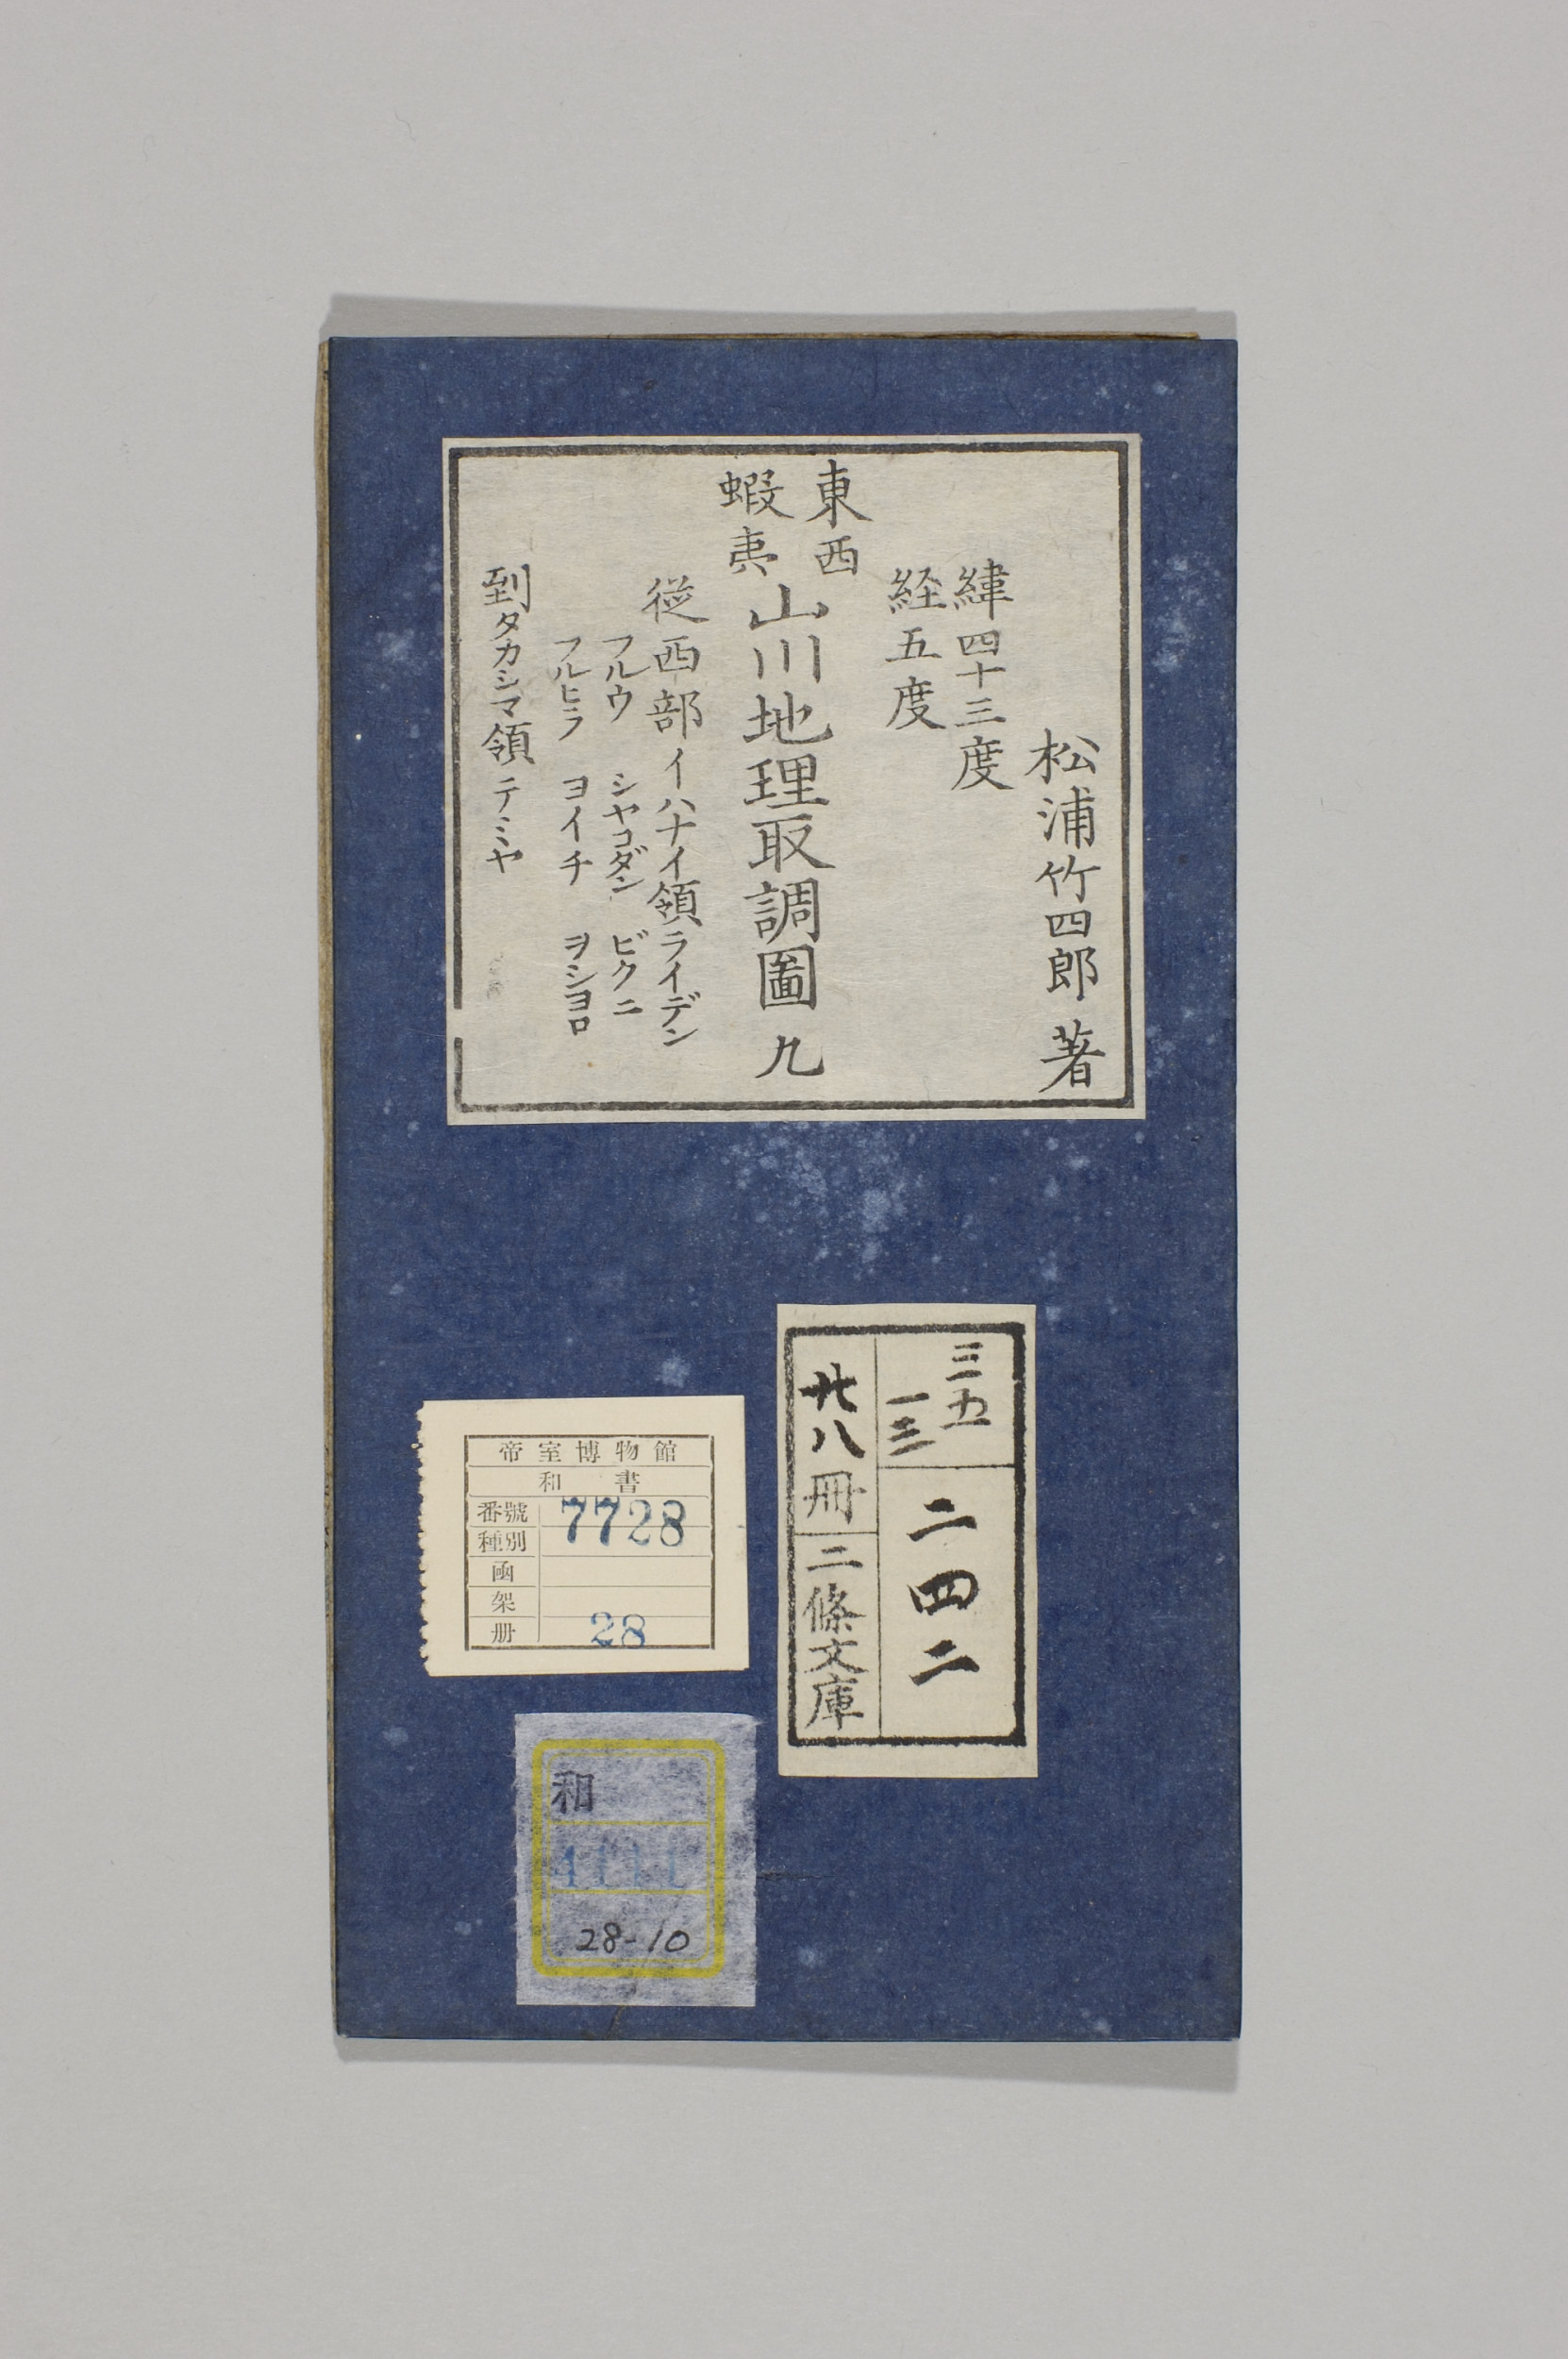 松浦竹四郎著
緯四十三度
経五度
東西
蝦夷
山川地理取調圖 九
従西部イハナイ領ライデン
フルウ シヤコダン ビクニ
フルヒラ ヨイチ ヲシヨロ
到タカシマ領テミヤ
三五
一三
二四二
廿八冊
二條文庫
帝室博物館
和書
番號 7728
種別
函
架
册 28
和
4111
28-10